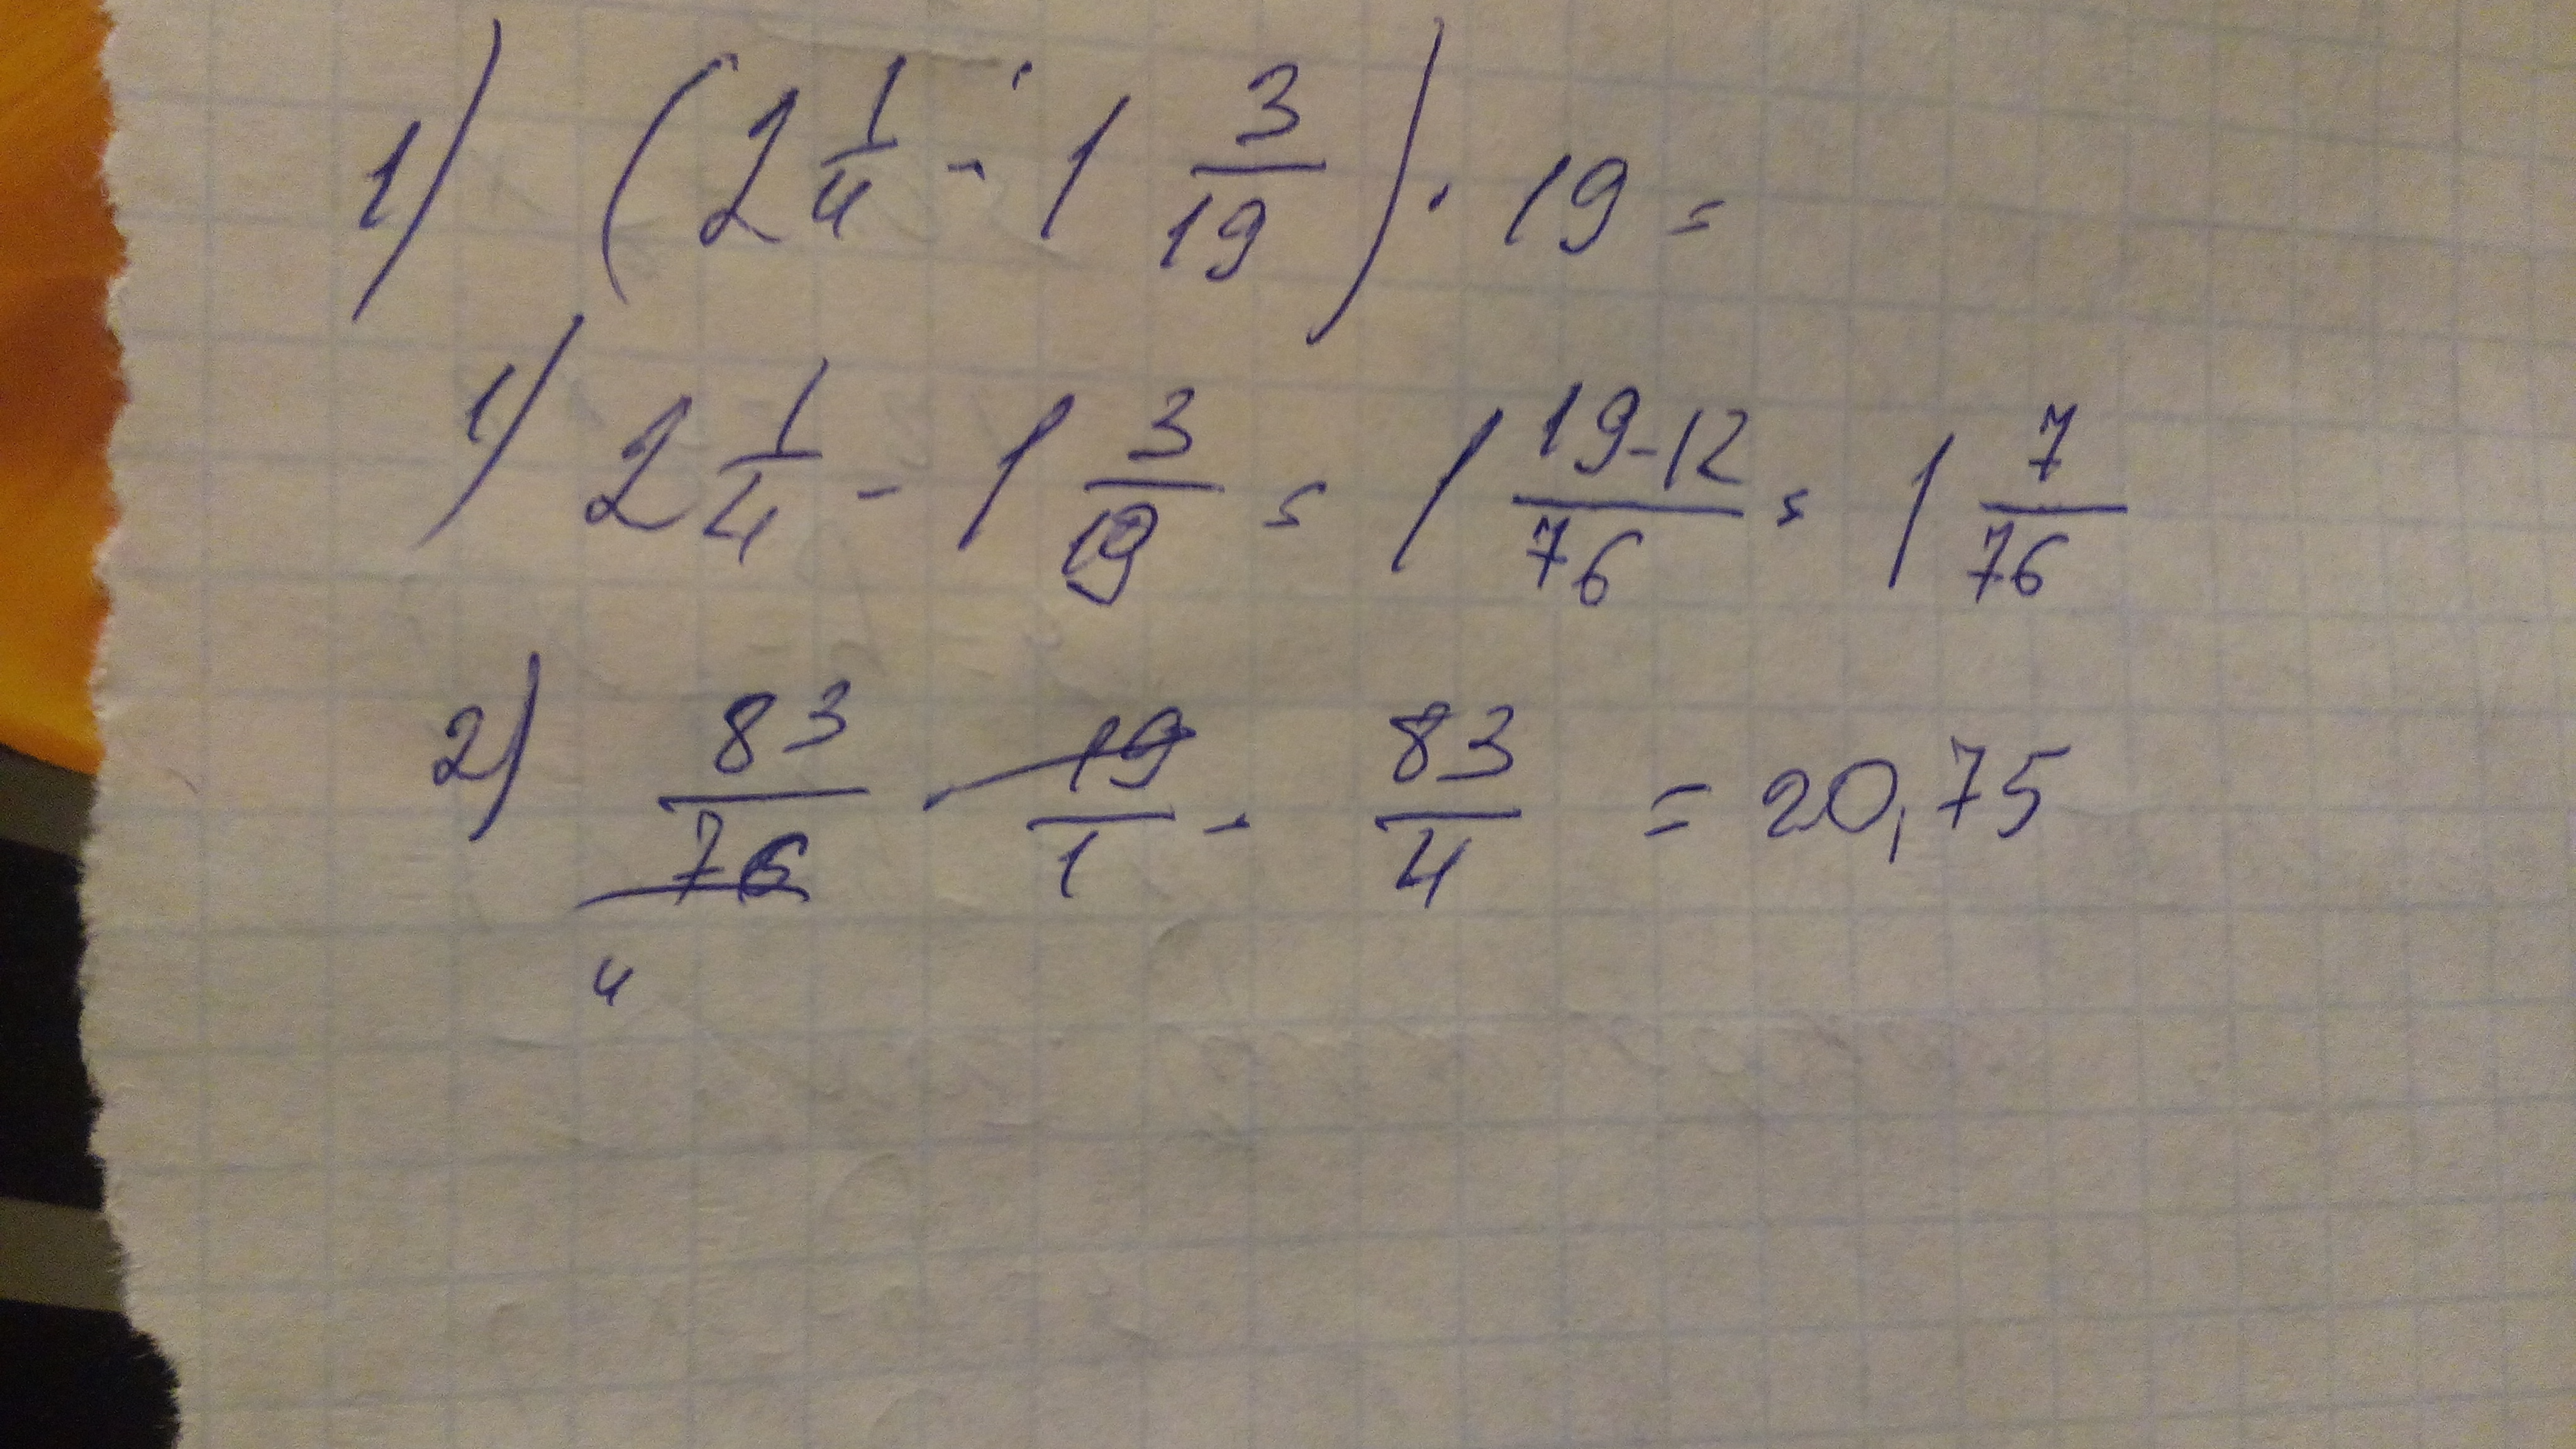 1) (2 1/4 - 1 3/19) · 19 =
1) 2 1/4 - 1 3/19 = 1 19-12/76 = 1 7/76
2) 83/76 · 19/1 - 83/4 = 20,75
4